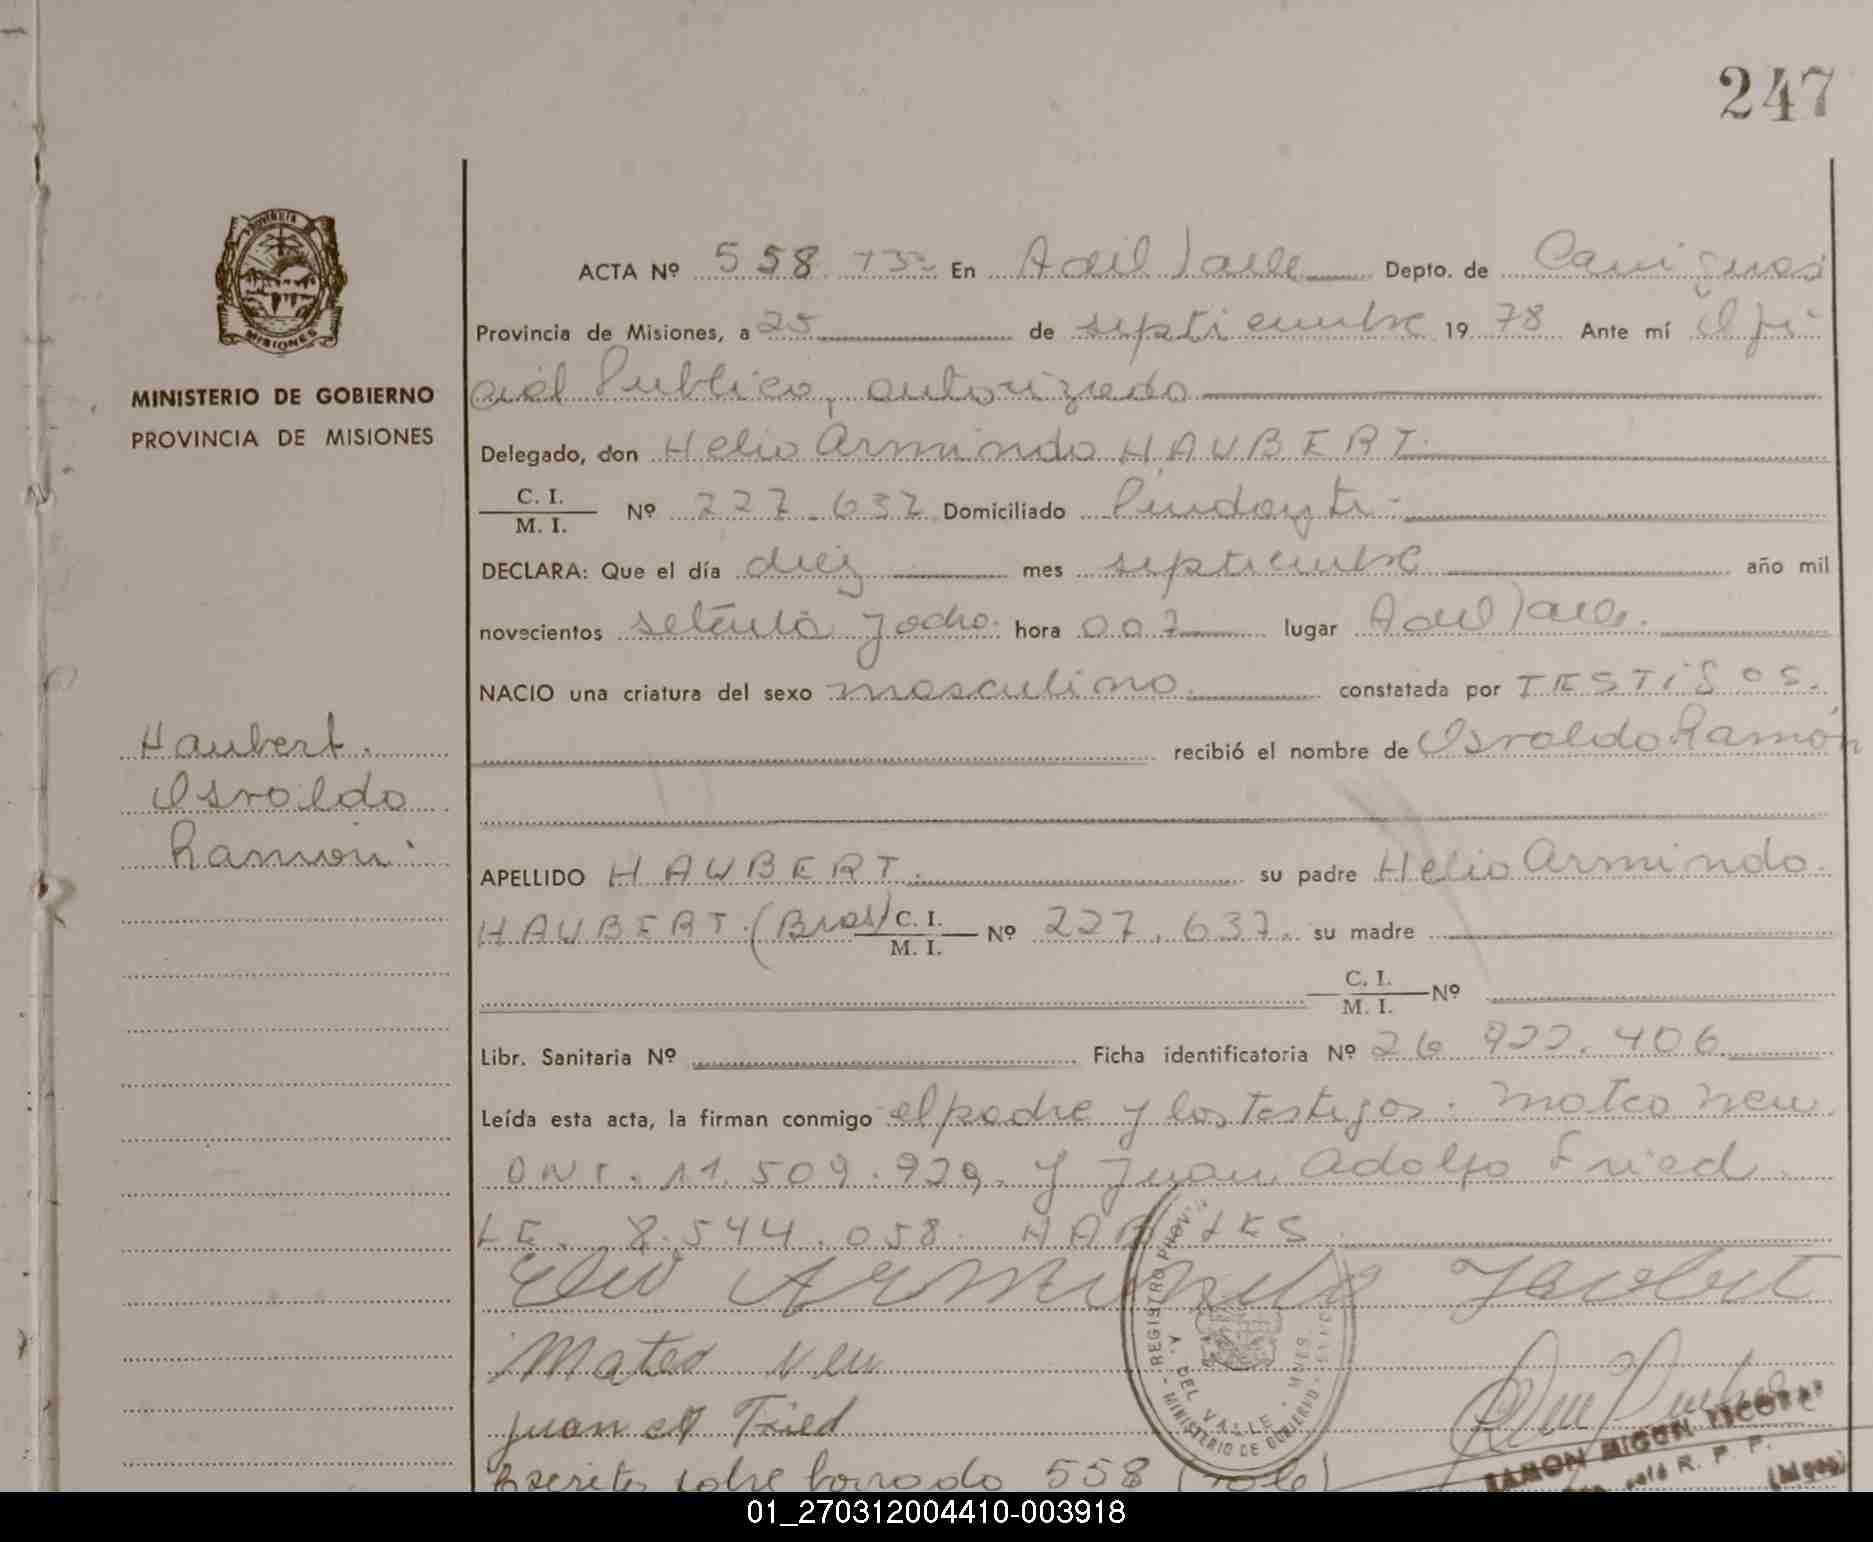 247
ACTA Nº 558 En A del Valle Depto. de Cainguas
Provincia de Misiones, a 25 de septiembre 19 78 Ante mí Ofi
cial Publico, autorizado
Delegado, don Helio Armindo HAUBERT.
C. I.
M. I.
Nº 227.637 Domiciliado Pindayti-
MINISTERIO DE GOBIERNO
PROVINCIA DE MISIONES
DECLARA: Que el día diez mes septiembre año mil
novecientos setenta y ocho. hora 007 lugar A del Valle.
NACIO una criatura del sexo masculino. constatada por TESTIGOS.
Haubert.
Osvaldo
Ramón.
recibió el nombre de Osvaldo Ramón
APELLIDO HAUBERT. su padre Helio Armindo.
HAUBERT. (Bras) C. I.
M. I.
Nº 227.637. su madre
C. I.
M. I.
Nº
Libr. Sanitaria Nº Ficha identificatoria Nº 26 922.406
Leída esta acta, la firman conmigo el padre y los testigos. Mateo Neu.
DNI. 11.509.929. y Juan Adolfo Fried.
LE. 8.544.058. HABILES
Armindo
Mateo Neu
Juan A Fried
REGISTRO PROV
A. DEL VALLE - MNES.
MINISTERIO DE GOBIERNO
RAMON MIGUN
R. P. P.
(Mnes)
Escrito sobre borrado 558 (vale)
01_270312004410-003918